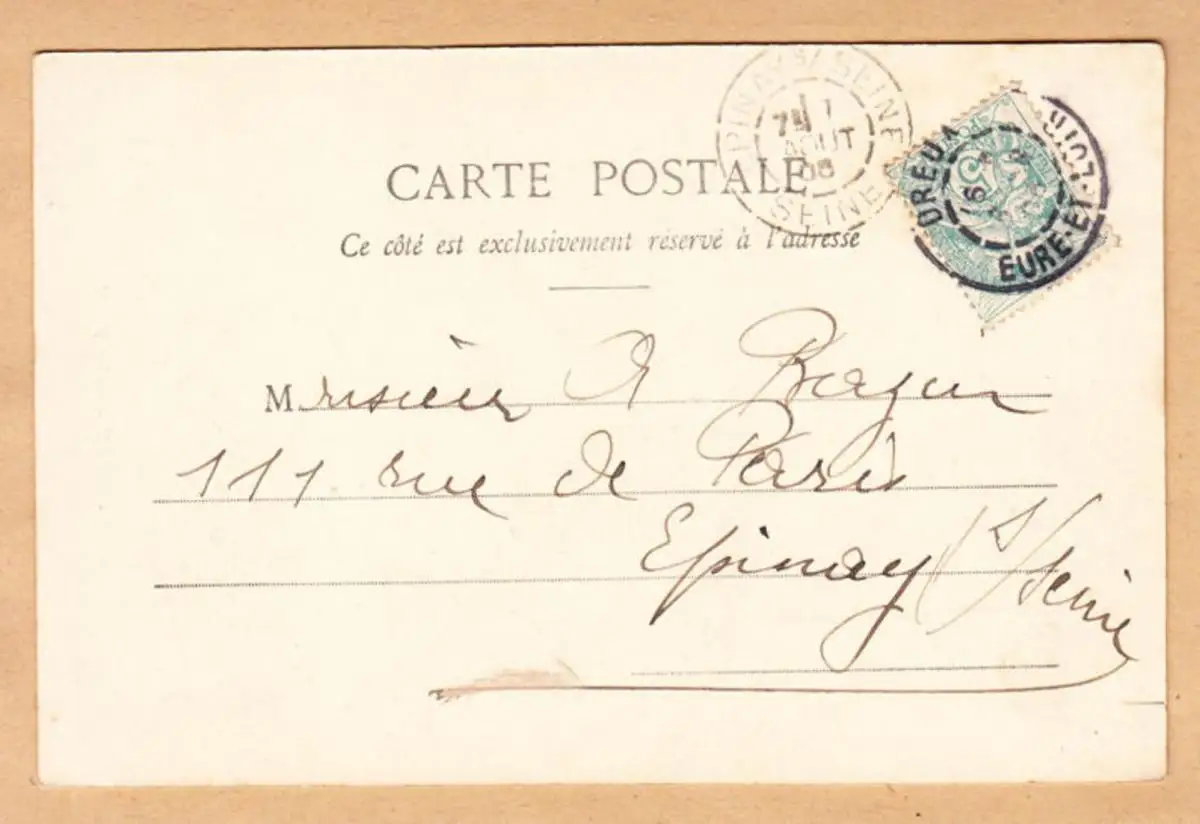 EPINAY S/ SEINE
7E 1
AOUT
SEINE
DREUX
EURE-ET-LOIR
CARTE POSTALE
Ce côté est exclusivement réservé à l'adresse
Monsieur A
111 rue de Paris
Epinay s/Seine